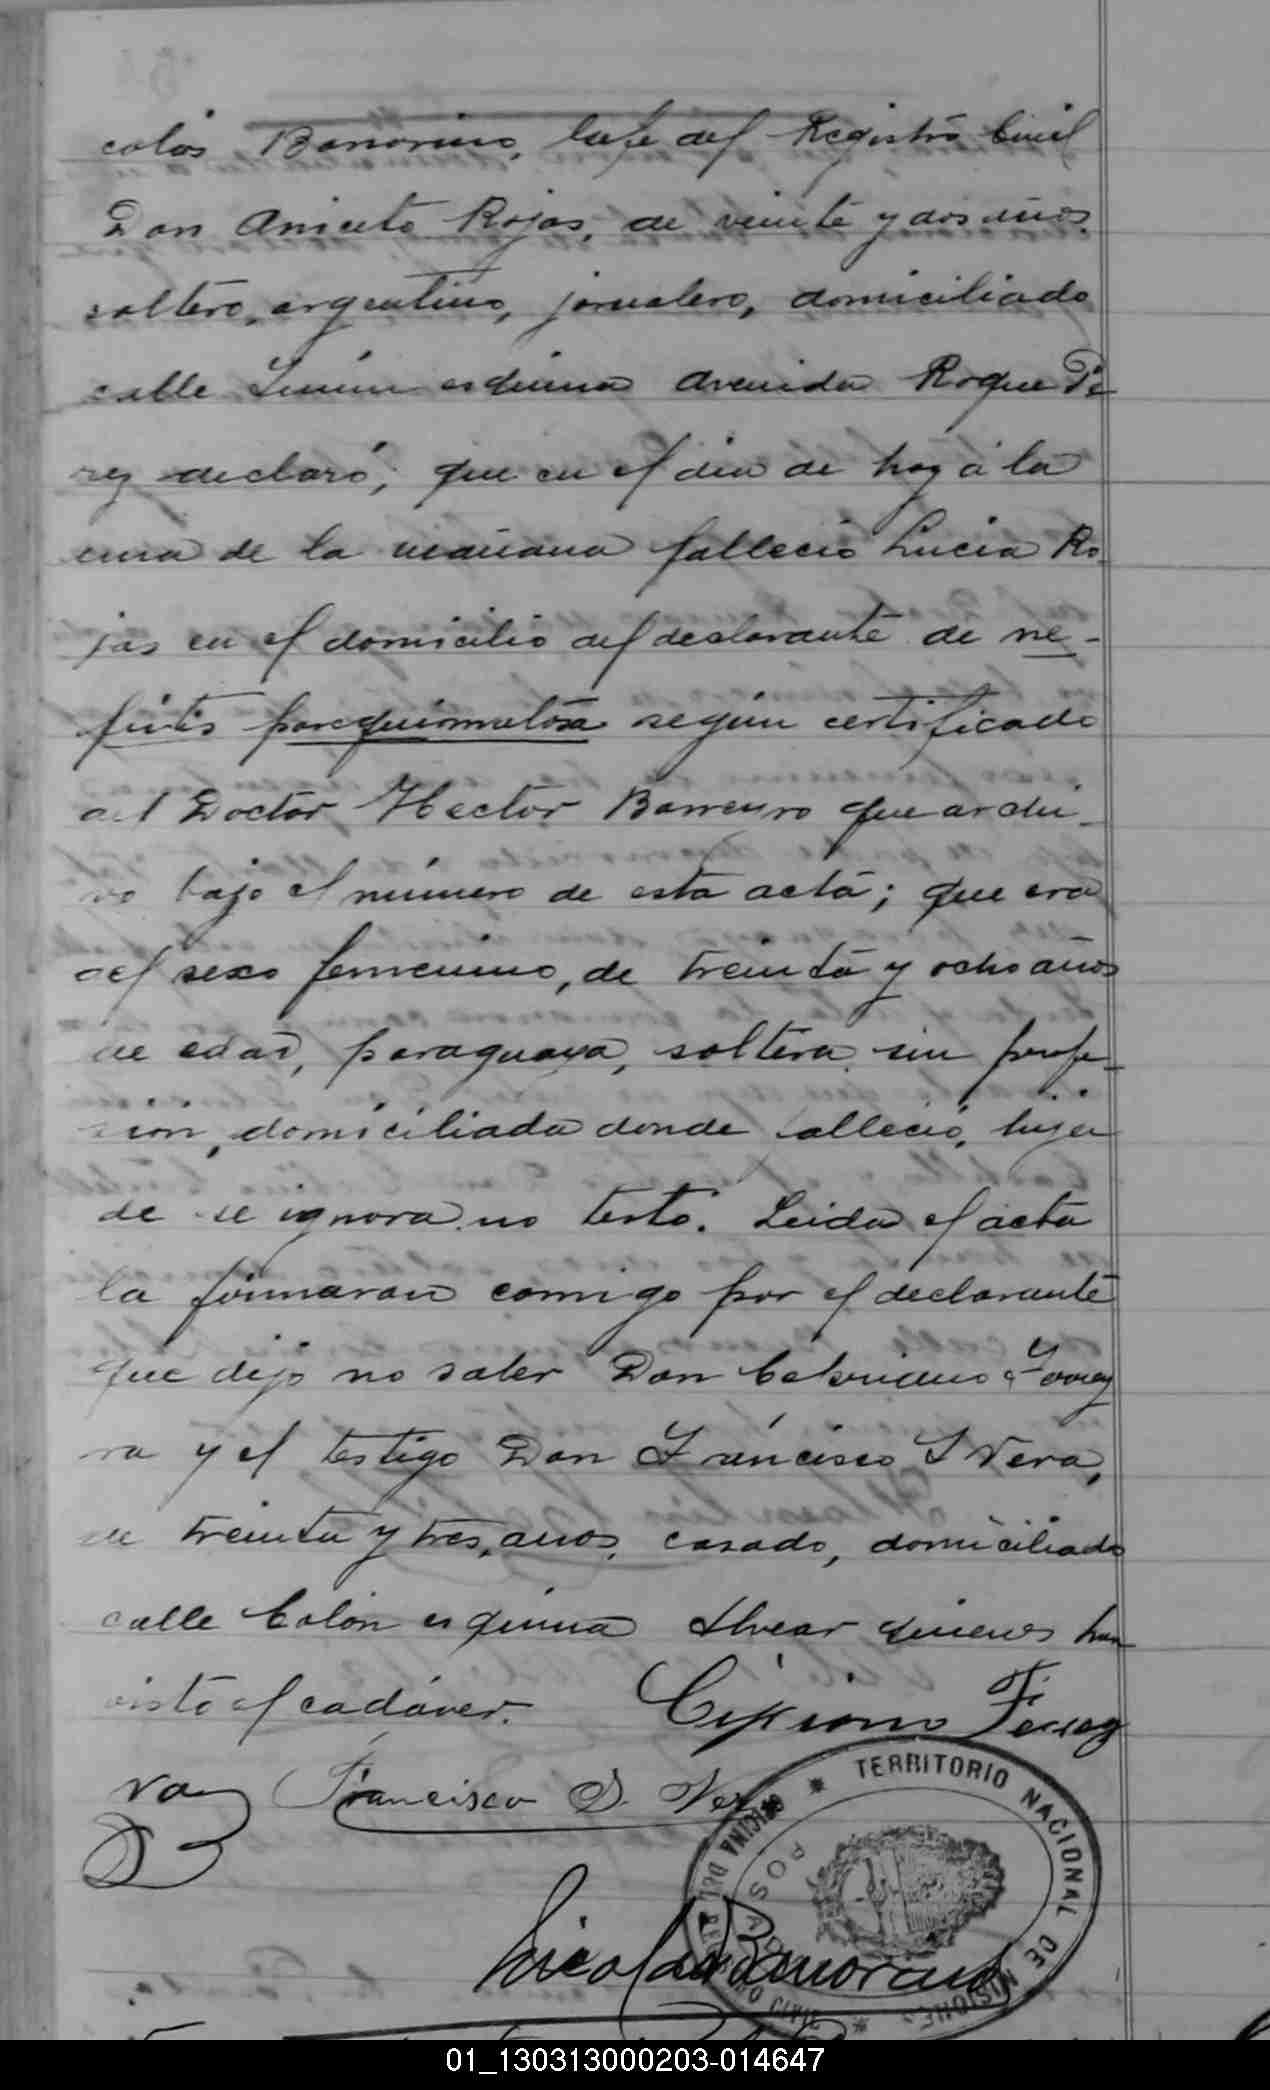 colás Bonorino, Gefe del Registro Civil
Don Aniceto Rojas, de veinte y dos años,
soltero, argentino, jornalero, domiciliado
calle Junin esquina Avenida Roque Pe
rez declaró; que en el dia de hoy á la
una de la mañana falleció Lucia Ro
jas en el domicilio del declarante de ne-
fritis parequimatosa según certificado
del Doctor Hector Barreyro que archi-
vo bajo el número de esta acta; que era
del sexo femenino, de treinta y ocho años
de edad, paraguaya, soltera, sin profe-
sión, domiciliada donde falleció, hija
de se ignora no testó. Leida el acta
la firmaron comigo por el declarante
que dijo no saber Don
ra y el testigo Don Francisco S Vera,
de treinta y tres años, casado, domiciliado
calle Colón esquina Alvear quienes han
visto el cadáver. Cipriano
Francisco S. Vera
Nicolás Bonorino
TERRITORIO NACIONAL DE MISIONES
OFICINA DEL REGISTRO CIVIL
POSADAS
01_130313000203-014647